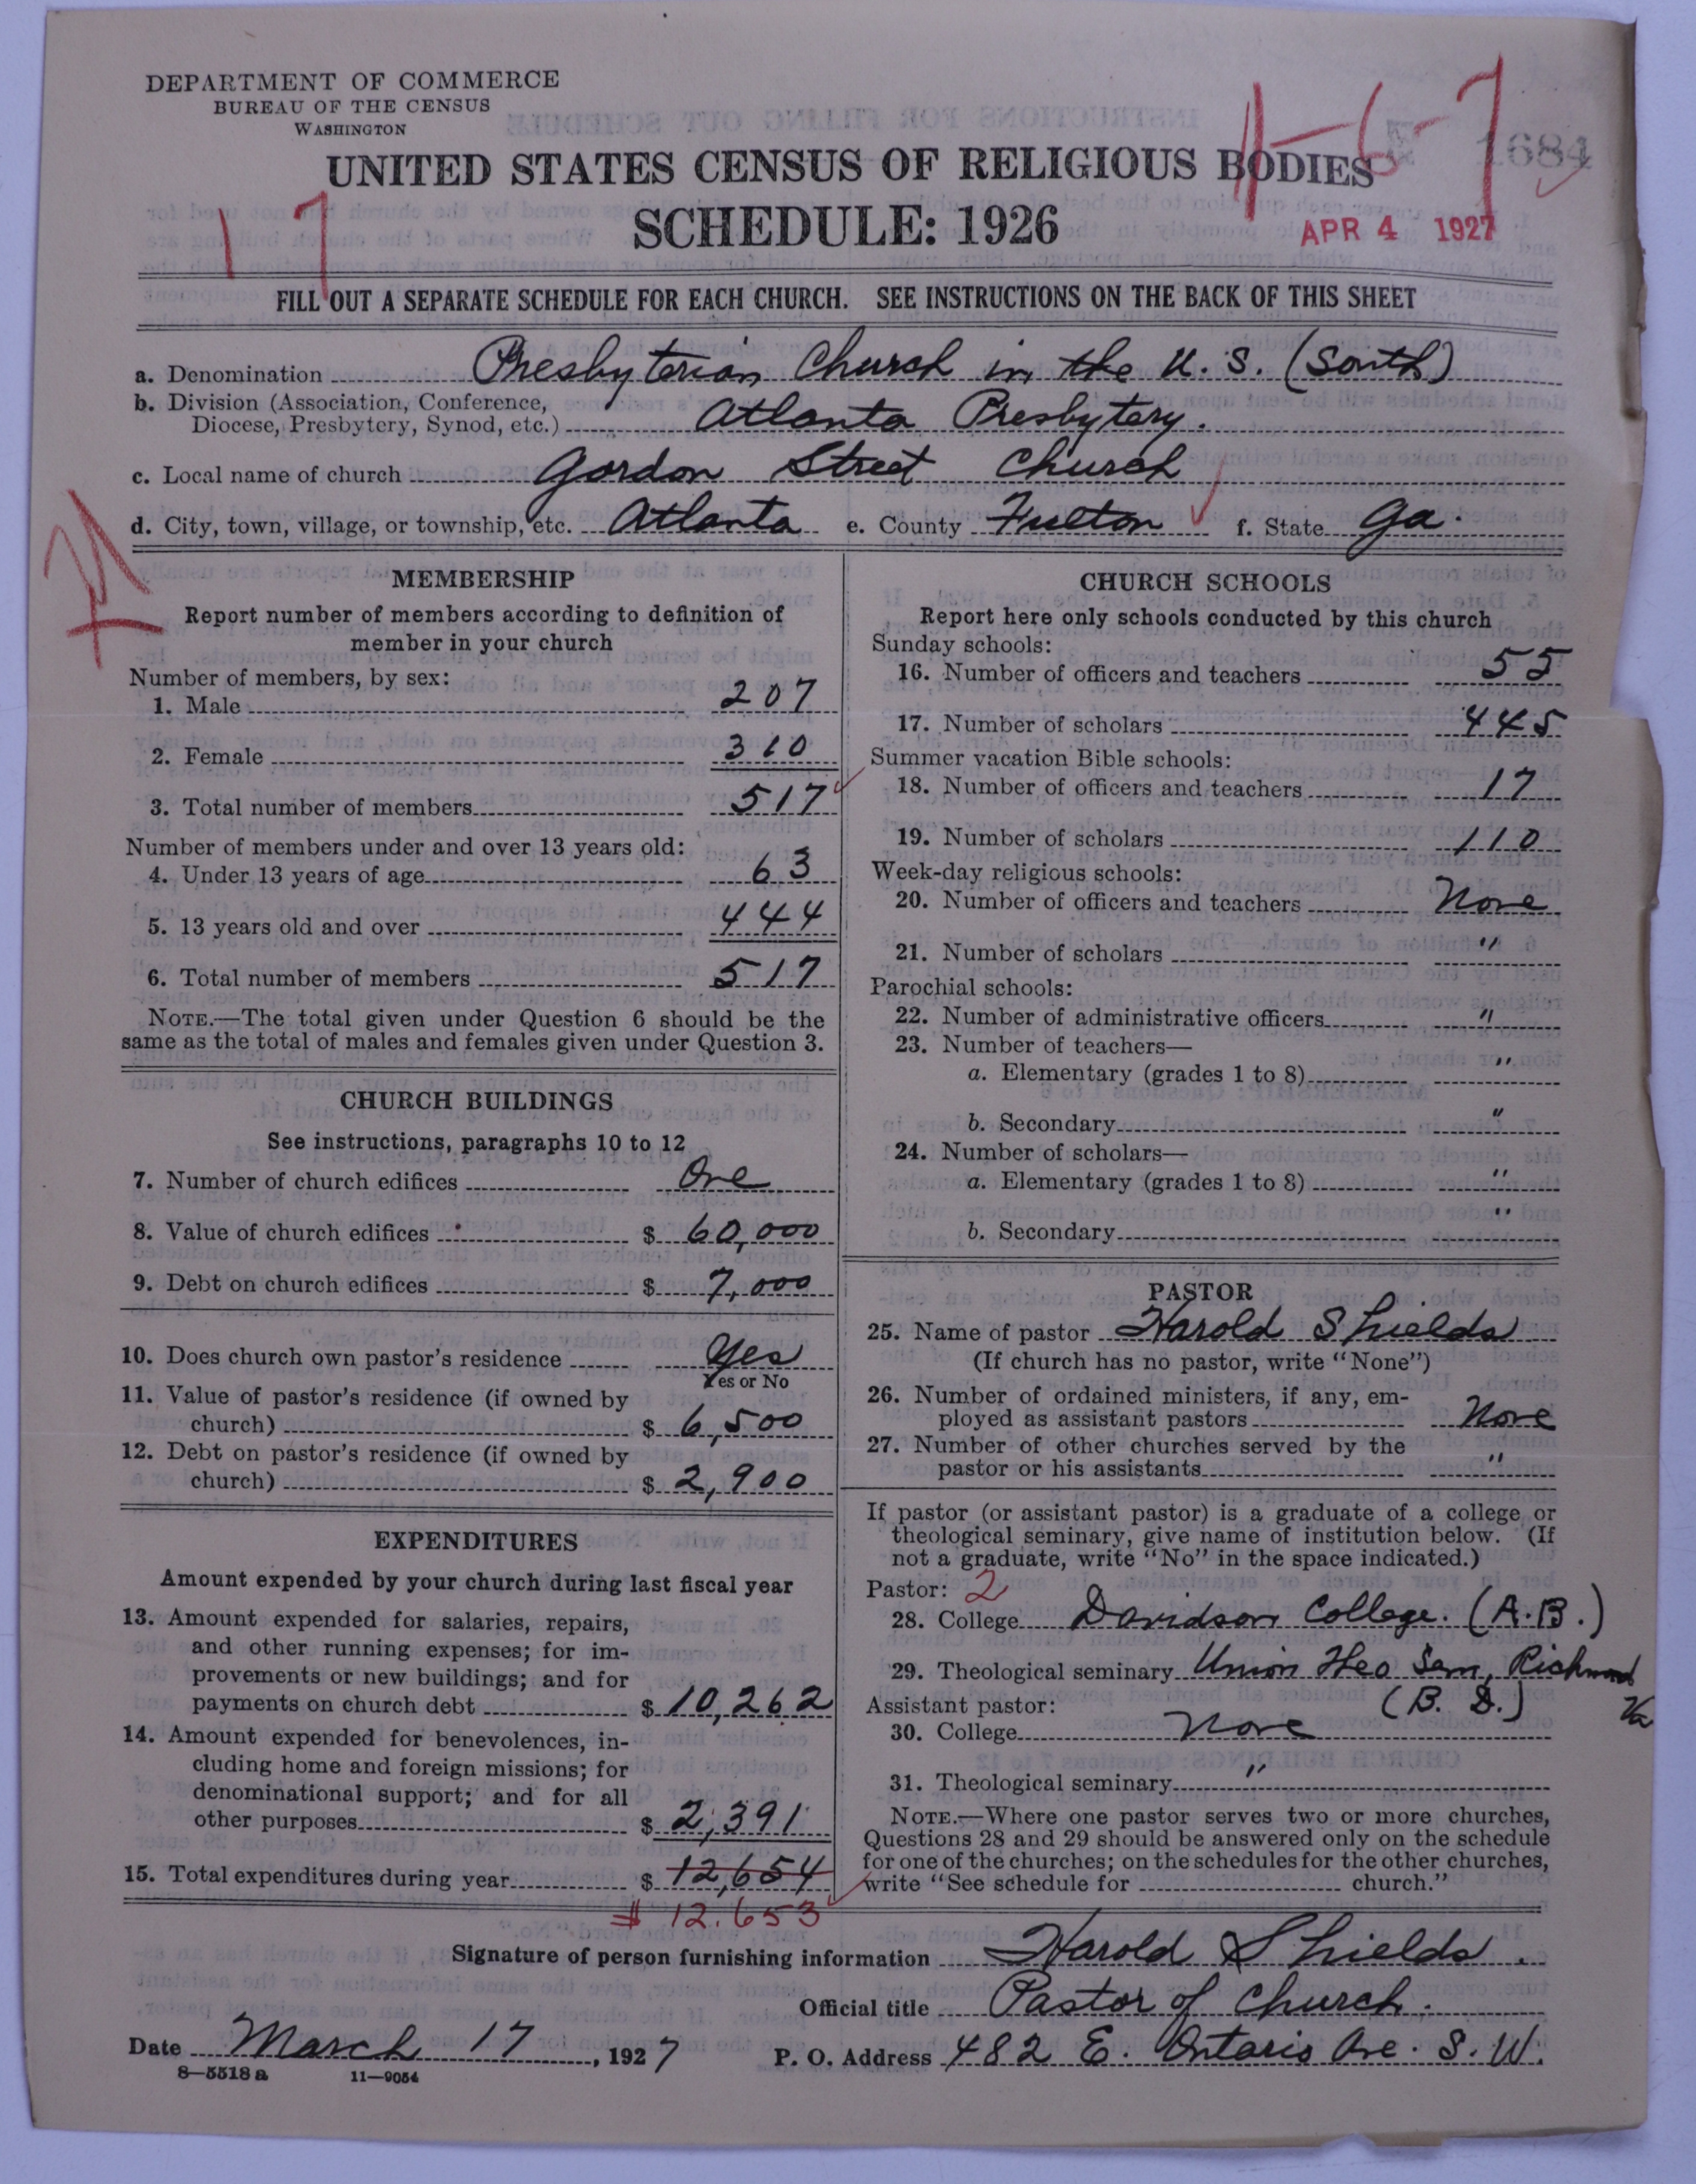 DEPARTMENT OF COMMERCE
BUREAU OF THE CENSUS
WASHINGTON
11-6-7
1684
UNITED STATES CENSUS OF RELIGIOUS BODIES
17
SCHEDULE: 1926
APR 4 1927
FILL OUT A SEPARATE SCHEDULE FOR EACH CHURCH. SEE INSTRUCTIONS ON THE BACK OF THIS SHEET
a. Denomination Presbyterian Church in the U. S. (South)
b. Division (Association, Conference,
Diocese, Presbytery, Synod, etc.) Atlanta Presbytery.
c. Local name of church Gordon Street Church
d. City, town, village, or township, etc. Atlanta e. County Fulton f. State Ga.
MEMBERSHIP
Report number of members according to definition of
member in your church
Number of members, by sex:
1. Male 207
2. Female 310
3. Total number of members 517
Number of members under and over 13 years old:
4. Under 13 years of age 63
5. 13 years old and over 444
6. Total number of members 517
NOTE.—The total given under Question 6 should be the
same as the total of males and females given under Question 3.
CHURCH BUILDINGS
See instructions, paragraphs 10 to 12
7. Number of church edifices One
8. Value of church edifices $ 60,000
9. Debt on church edifices $ 7,000
10. Does church own pastor's residence Yes
Yes or No
11. Value of pastor's residence (if owned by
church) $ 6,500
12. Debt on pastor's residence (if owned by
church) $ 2,900
EXPENDITURES
Amount expended by your church during last fiscal year
13. Amount expended for salaries, repairs,
and other running expenses; for im-
provements or new buildings; and for
payments on church debt $ 10,262
14. Amount expended for benevolences, in-
cluding home and foreign missions; for
denominational support; and for all
other purposes $ 2,391
15. Total expenditures during year $ 12,654
$ 12.653
CHURCH SCHOOLS
Report here only schools conducted by this church
Sunday schools:
16. Number of officers and teachers 55
17. Number of scholars 445
Summer vacation Bible schools:
18. Number of officers and teachers 17
19. Number of scholars 110
Week-day religious schools:
20. Number of officers and teachers None
21. Number of scholars "
Parochial schools:
22. Number of administrative officers "
23. Number of teachers—
a. Elementary (grades 1 to 8) "
b. Secondary "
24. Number of scholars—
a. Elementary (grades 1 to 8) "
b. Secondary "
PASTOR
25. Name of pastor Harold Shields
(If church has no pastor, write "None")
26. Number of ordained ministers, if any, em-
ployed as assistant pastors None
27. Number of other churches served by the
pastor or his assistants "
If pastor (or assistant pastor) is a graduate of a college or
theological seminary, give name of institution below. (If
not a graduate, write "No" in the space indicated.)
Pastor: 2
28. College Davidson College. (A.B.)
29. Theological seminary Union Theo Sem, Richmond
Va
Assistant pastor: (B. D.)
30. College None
31. Theological seminary "
NOTE.—Where one pastor serves two or more churches,
Questions 28 and 29 should be answered only on the schedule
for one of the churches; on the schedules for the other churches,
write "See schedule for church."
Signature of person furnishing information Harold Shields.
Official title Pastor of Church.
Date March 17, 1927 P. O. Address 482 E. Ontario Ave. S. W.
8—5518a 11—9054